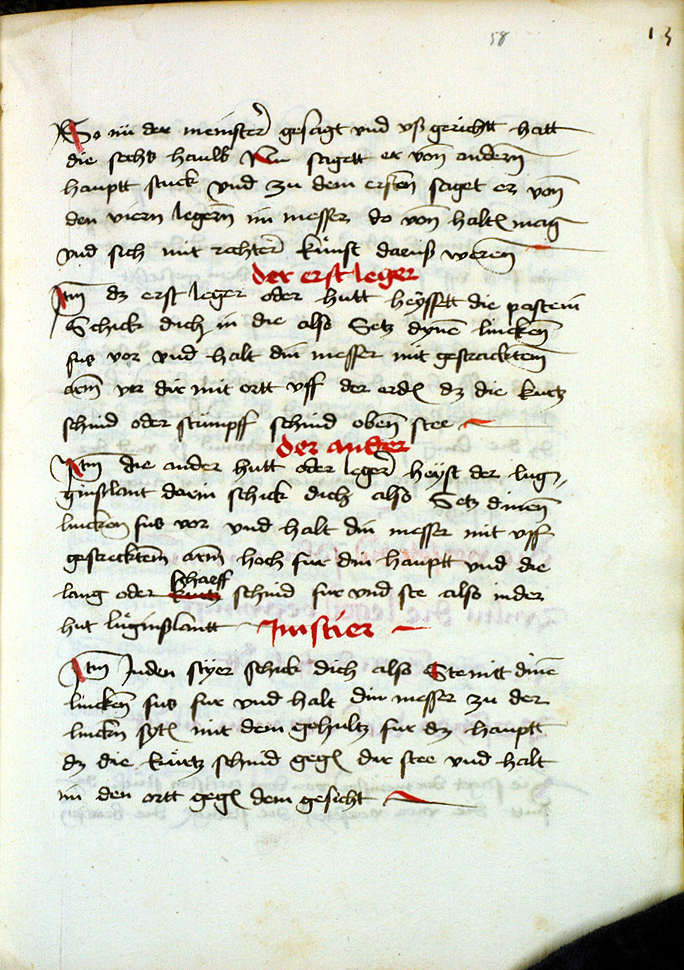 58 13
So nu der meinster gesagt vnd vß gerichtt hatt
die sechs haulb Nu sagett er von andern
hauptt stuck vnd zu dem ersten saget er von
den viern legern im messer do von halten mag
vnd sich mit rechter kunst daruß weren
der erst leger
Itm dz erst leger oder hutt heyssett die pastein
Schick dich in die also Setz dynen lincken
fus vor vnd halt din messer mit gestracktem
arm vor dir mit ortt vff der erden dz die kurtz
schnid oder stumpff schnid oben stee
der ander
Itm die ander hutt oder leger heyst der lug
ginslant dorin schick dich also Setz dinen
lincken fus vor vnd halt din messer mit vff
gestrecktem arm hoch fur din hauptt vnd die
lang oder kurtz scharff schnid fur vnd stee also in der
hut luginslantt Im stier
Itm In den styer schick dich also Stee mitt dinen
lincken fus fur vnd halt din messer zu der
lincken syten mit dem gehultz fur dz hauptt
dz die kurtz schnid gegen dir stee vnd halt
im den ortt gegen dem gesicht